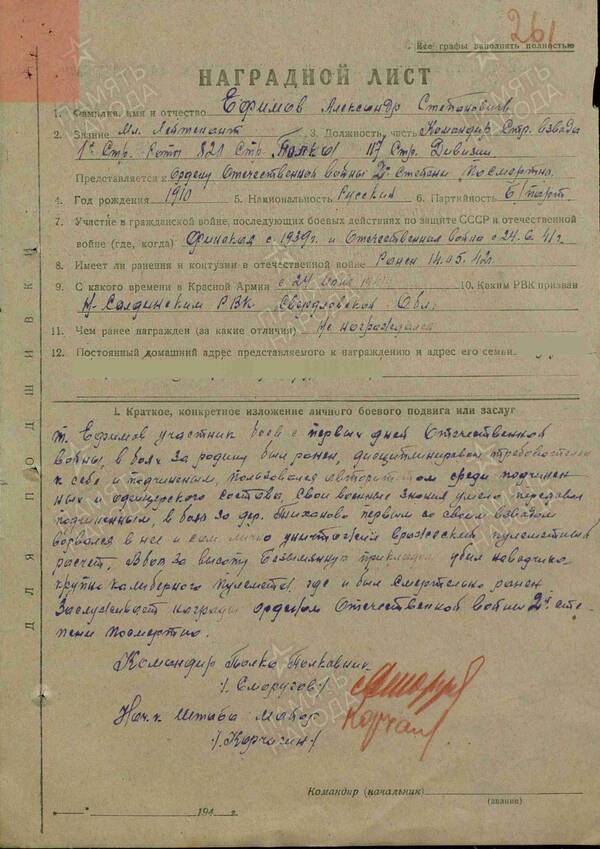 261
Все графы заполнять полностью
НАГРАДНОЙ ЛИСТ
1. Фамилия, имя и отчество Ефимов Александр Степанович
2. Звание Мл. Лейтенант 3. Должность, часть Командир Стр. взвода
1й Стр. Роты 821 Стр. Полка 117 Стр. Дивизии
Представляется к Ордену Отечественной войны 2й Степени Посмертно.
4. Год рождения 1910 5. Национальность Русский 6. Партийность б/парт
7. Участие в гражданской войне, последующих боевых действиях по защите СССР и отечественной
войне (где, когда) Финская с 1939г. и Отечественная война с 24.6.41г.
8. Имеет ли ранения и контузии в отечественной войне Ранен 14.05.42г.
9. С какого времени в Красной Армии с 24 июня 10. Каким РВК призван
Н-Салдинским РВК Свердловской Обл.
11. Чем ранее награжден (за какие отличия) Не награждался
12. Постоянный домашний адрес представляемого к награждению и адрес его семьи.
ДЛЯ ПОДШИВКИ
I. Краткое, конкретное изложение личного боевого подвига или заслуг
т. Ефимов участник боев с первых дней Отечественной
войны, в боях за родину был ранен, дисциплинирован требователен
к себе и подчиненым, пользовался авторитетом среди подчинен
ных и офицерского состава, свои военные знания умело передавал
подчиненным, в бою за дер. Тиханово первым со своим взводом
ворвался в нее и сам лично уничтожил вражеский пулеметный
расчет, В бою за высоту Безымянную прикладом убил наводчика
крупно калиберного пулемета, где и был смертельно ранен
Заслуживает награды орденом Отечественной войны 2й сте
пени посмертно.
Командир Полка Полковник
/. Сморугов ./
Нач. Штаба Майор
/. Корчагин ./
Командир (начальник)
(звание)
194 г.
ПАМЯТЬ НАРОДА